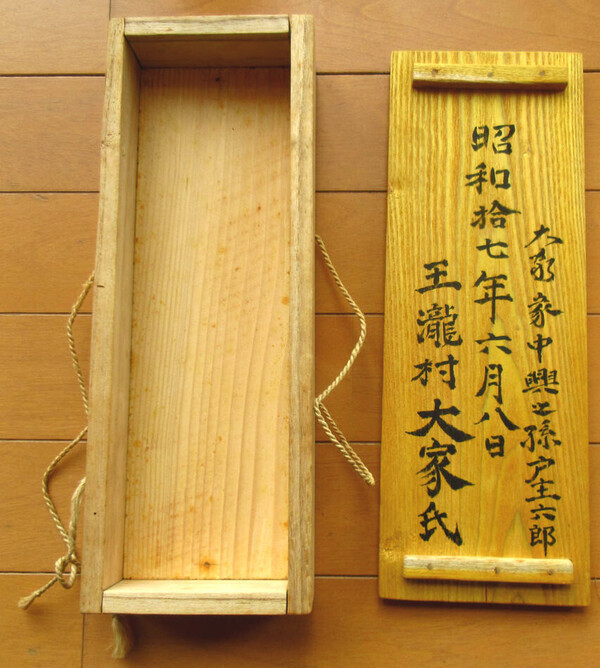 大家家中興之孫戸主六郎
昭和拾七年六月八日
王瀧村大家氏